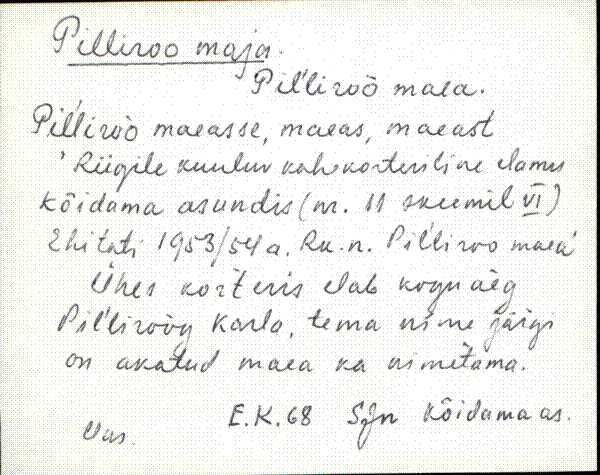 Pilliroo maja.
Pil'liroò maea.
Pil'liroò maeasse, maeas, maeast
'Riigile kuuluv kahekorteriline elamu
Kõidama asundis (nr. 11 skeemil VI)
Ehitati 1953/54 a. Rk.n. Pil'liroo maea'
Ühes korteris elab kogu aeg
Pil'liroòg Karla, tema nime järgi
on akatud maea ka nimetama.
E.K. 68 Sjn Kõidama as.